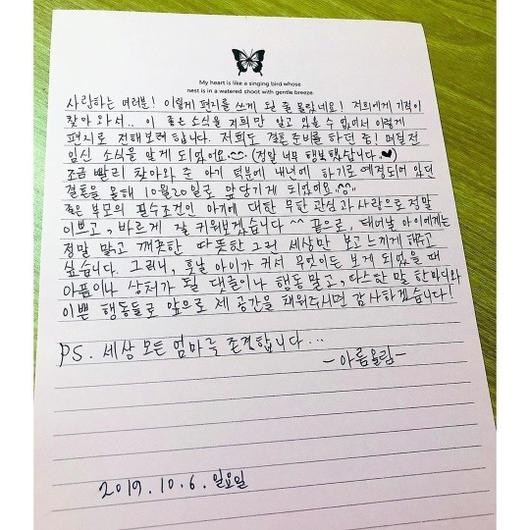 My heart is like a singing bird whose
nest is in a watered shoot with gentle breeze
사랑하는 여러분! 이렇게 편지를 쓰게 될 줄 몰랐네요! 저희에게 기적이
찾아 와서.. 이 좋은 소식을 저희만 알고 있을 수 없어서 이렇게
편지로 전해보려 합니다. 저희도 결혼준비를 하던 중! 며칠전
임신 소식을 알게 되었어요 (정말 너무 행복했습니다 ♥)
조금 빨리 찾아와 준 아기 덕분에 내년에 하기로 예정되어 있던
결혼을 올해 10월20일로 앞당기게 되었어요
좋은 부모의 필수조건인 아기에 대한 무한 관심과 사랑으로 정말
이쁘고, 바르게 잘 키워보겠습니다 ^^ 끝으로, 태어날 아이에게는
정말 맑고 깨끗한 따뜻한 그런 세상만 보고 느끼게 해주고
싶습니다. 그러니, 훗날 아이가 커서 무엇이든 보게 되었을 때
아픔이나 상처가 될 댓글이나 행동 말고, 다스한 말 한마디와
이쁜 행동들로 앞으로 제 공간을 채워주시면 감사하겠습니다!
PS. 세상 모든 엄마를 존경합니다...
-아름올림-
2019. 10. 6. 일요일